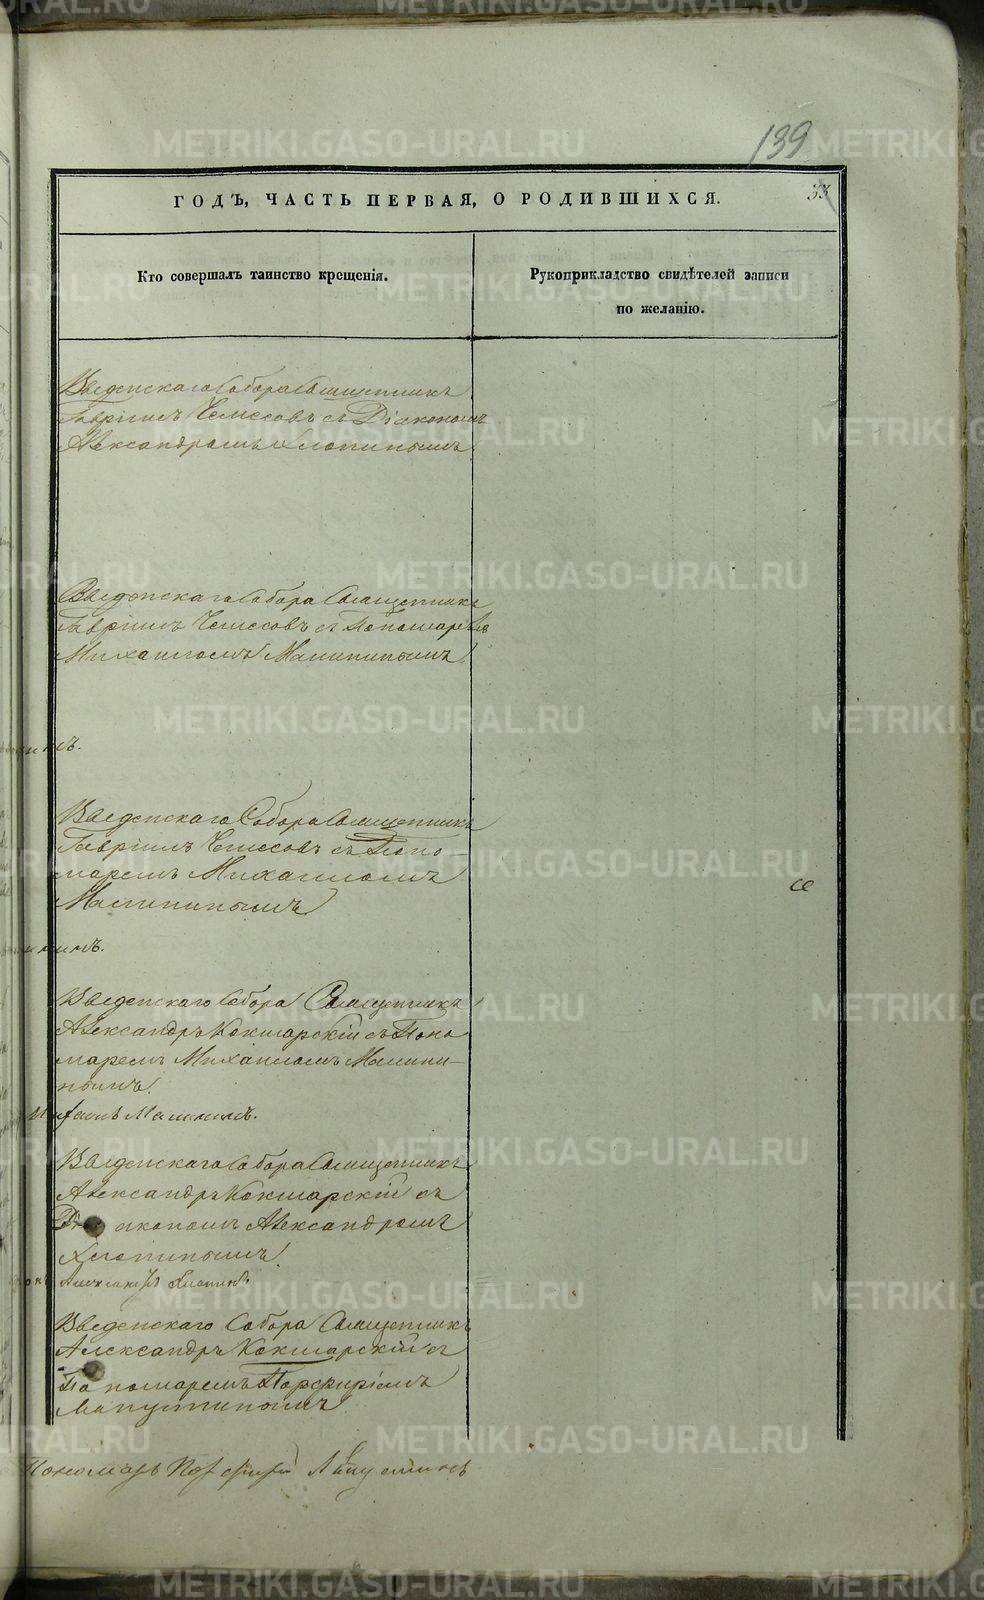 139
33
ГОДЪ, ЧАСТЬ ПЕРВАЯ, О РОДИВШИХСЯ.
Кто совершалъ таинство крещенія.
Рукоприкладство свидѣтелей записи
по желанію.
Введенскаго Собора Священникъ
Гавріилъ Чемесовъ съ Діакономъ
Александромъ Хлопинымъ
Введенскаго Собора Священникъ
Гавріилъ Чемесовъ съ Пономаремъ
Михаиломъ Малининымъ
Введенскаго Собора Священникъ
Гавріилъ Чемесовъ съ Поно-
маремъ Михаиломъ
Малининымъ
Введенскаго Собора Священникъ
Александръ Кокшарскій съ Поно
маремъ Михаиломъ Малини-
нымъ
Малининъ.
Введенскаго Собора Священникъ
Александръ Кокшарскій съ
Діакономъ Александромъ
Хлопинымъ
Александръ Хлопинъ.
Введенскаго Собора Священникъ
Александръ Кокшарскій съ
Пономаремъ Порфиріемъ
Лапустинымъ
Пономарь Порфирій Лапустинъ
METRIKI.GASO-URAL.RU